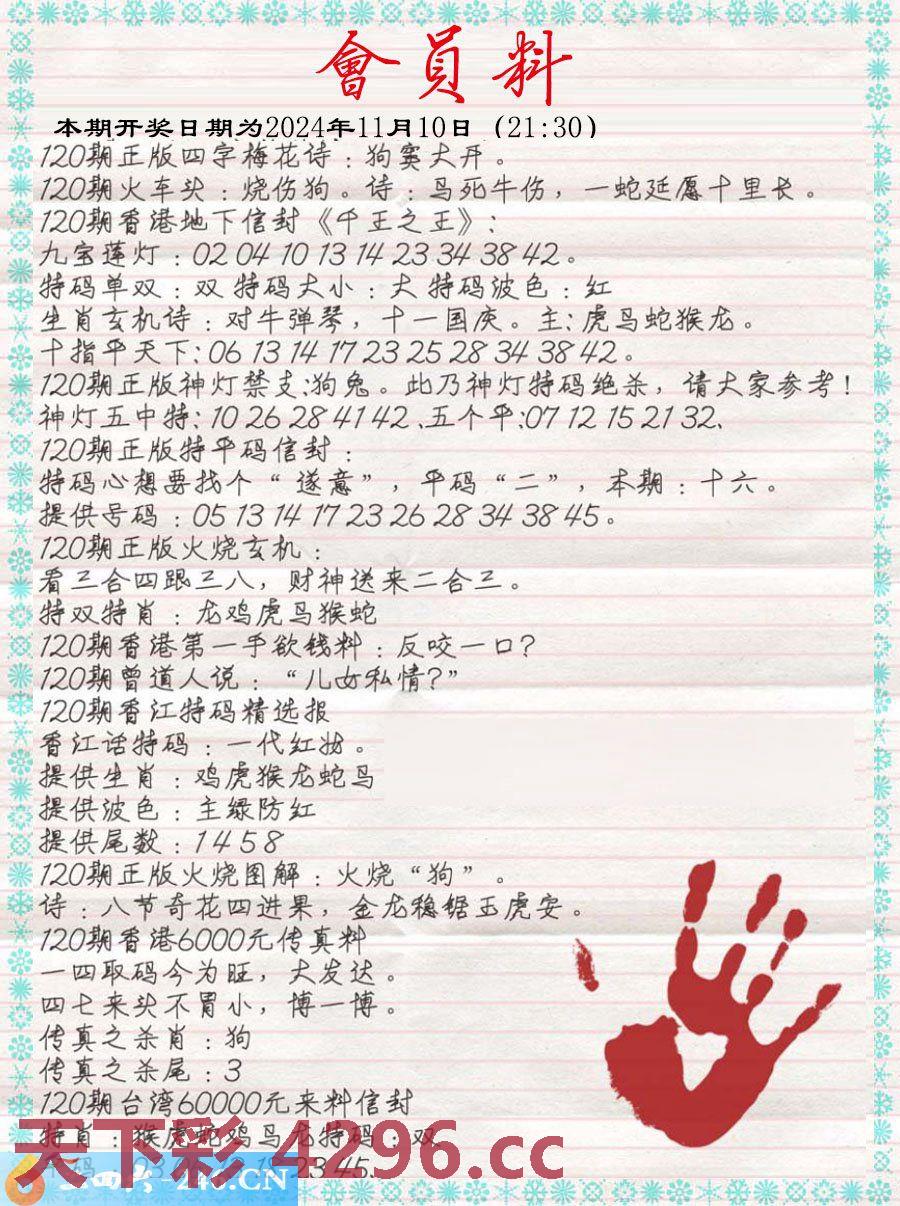 會員料
本期开奖日期为2024年11月10日（21:30）
120期正版四字梅花诗：狗窦大开。
120期火车头：烧伤狗。诗：鸟死牛伤，一蛇延愿十里长。
120期香港地下信封《千王之王》：
九宝莲灯：02 04 10 13 14 23 34 38 42。
特码单双：双 特码大小：大 特码波色：红
生肖玄机诗：对牛弹琴，十一国庆。主：虎马蛇猴龙。
十指平天下：06 13 14 17 23 25 28 34 38 42。
120期正版神灯禁支：狗兔。此乃神灯特码绝杀，请大家参考！
神灯五中特：10 26 28 41 42 .五个平：07 12 15 21 32.
120期正版特平码信封：
特码心想要找个“遂意”，平码“二”，本期：十六。
提供号码：05 13 14 17 23 26 28 34 38 45。
120期正版火烧玄机：
看三合四跟三八，财神送来二合三。
特双特肖：龙鸡虎马猴蛇
120期香港第一手欲钱料：反咬一口？
120期曾道人说：“儿女私情？”
120期香江特码精选报
香江话特码：一代红妆。
提供生肖：鸡虎猴龙蛇马
提供波色：主绿防红
提供尾数：1 4 5 8
120期正版火烧图解：火烧“狗”。
诗：八节奇花四进果，金龙稳锯玉虎安。
120期香港6000元传真料
一四取码今为旺，大发达。
四七来头不胃小，博一博。
传真之杀肖：狗
传真之杀尾：3
120期台湾60000元来料信封
特肖：猴虎蛇鸡马龙特码：双
天下彩 4296.cc
23 45.
246.CN